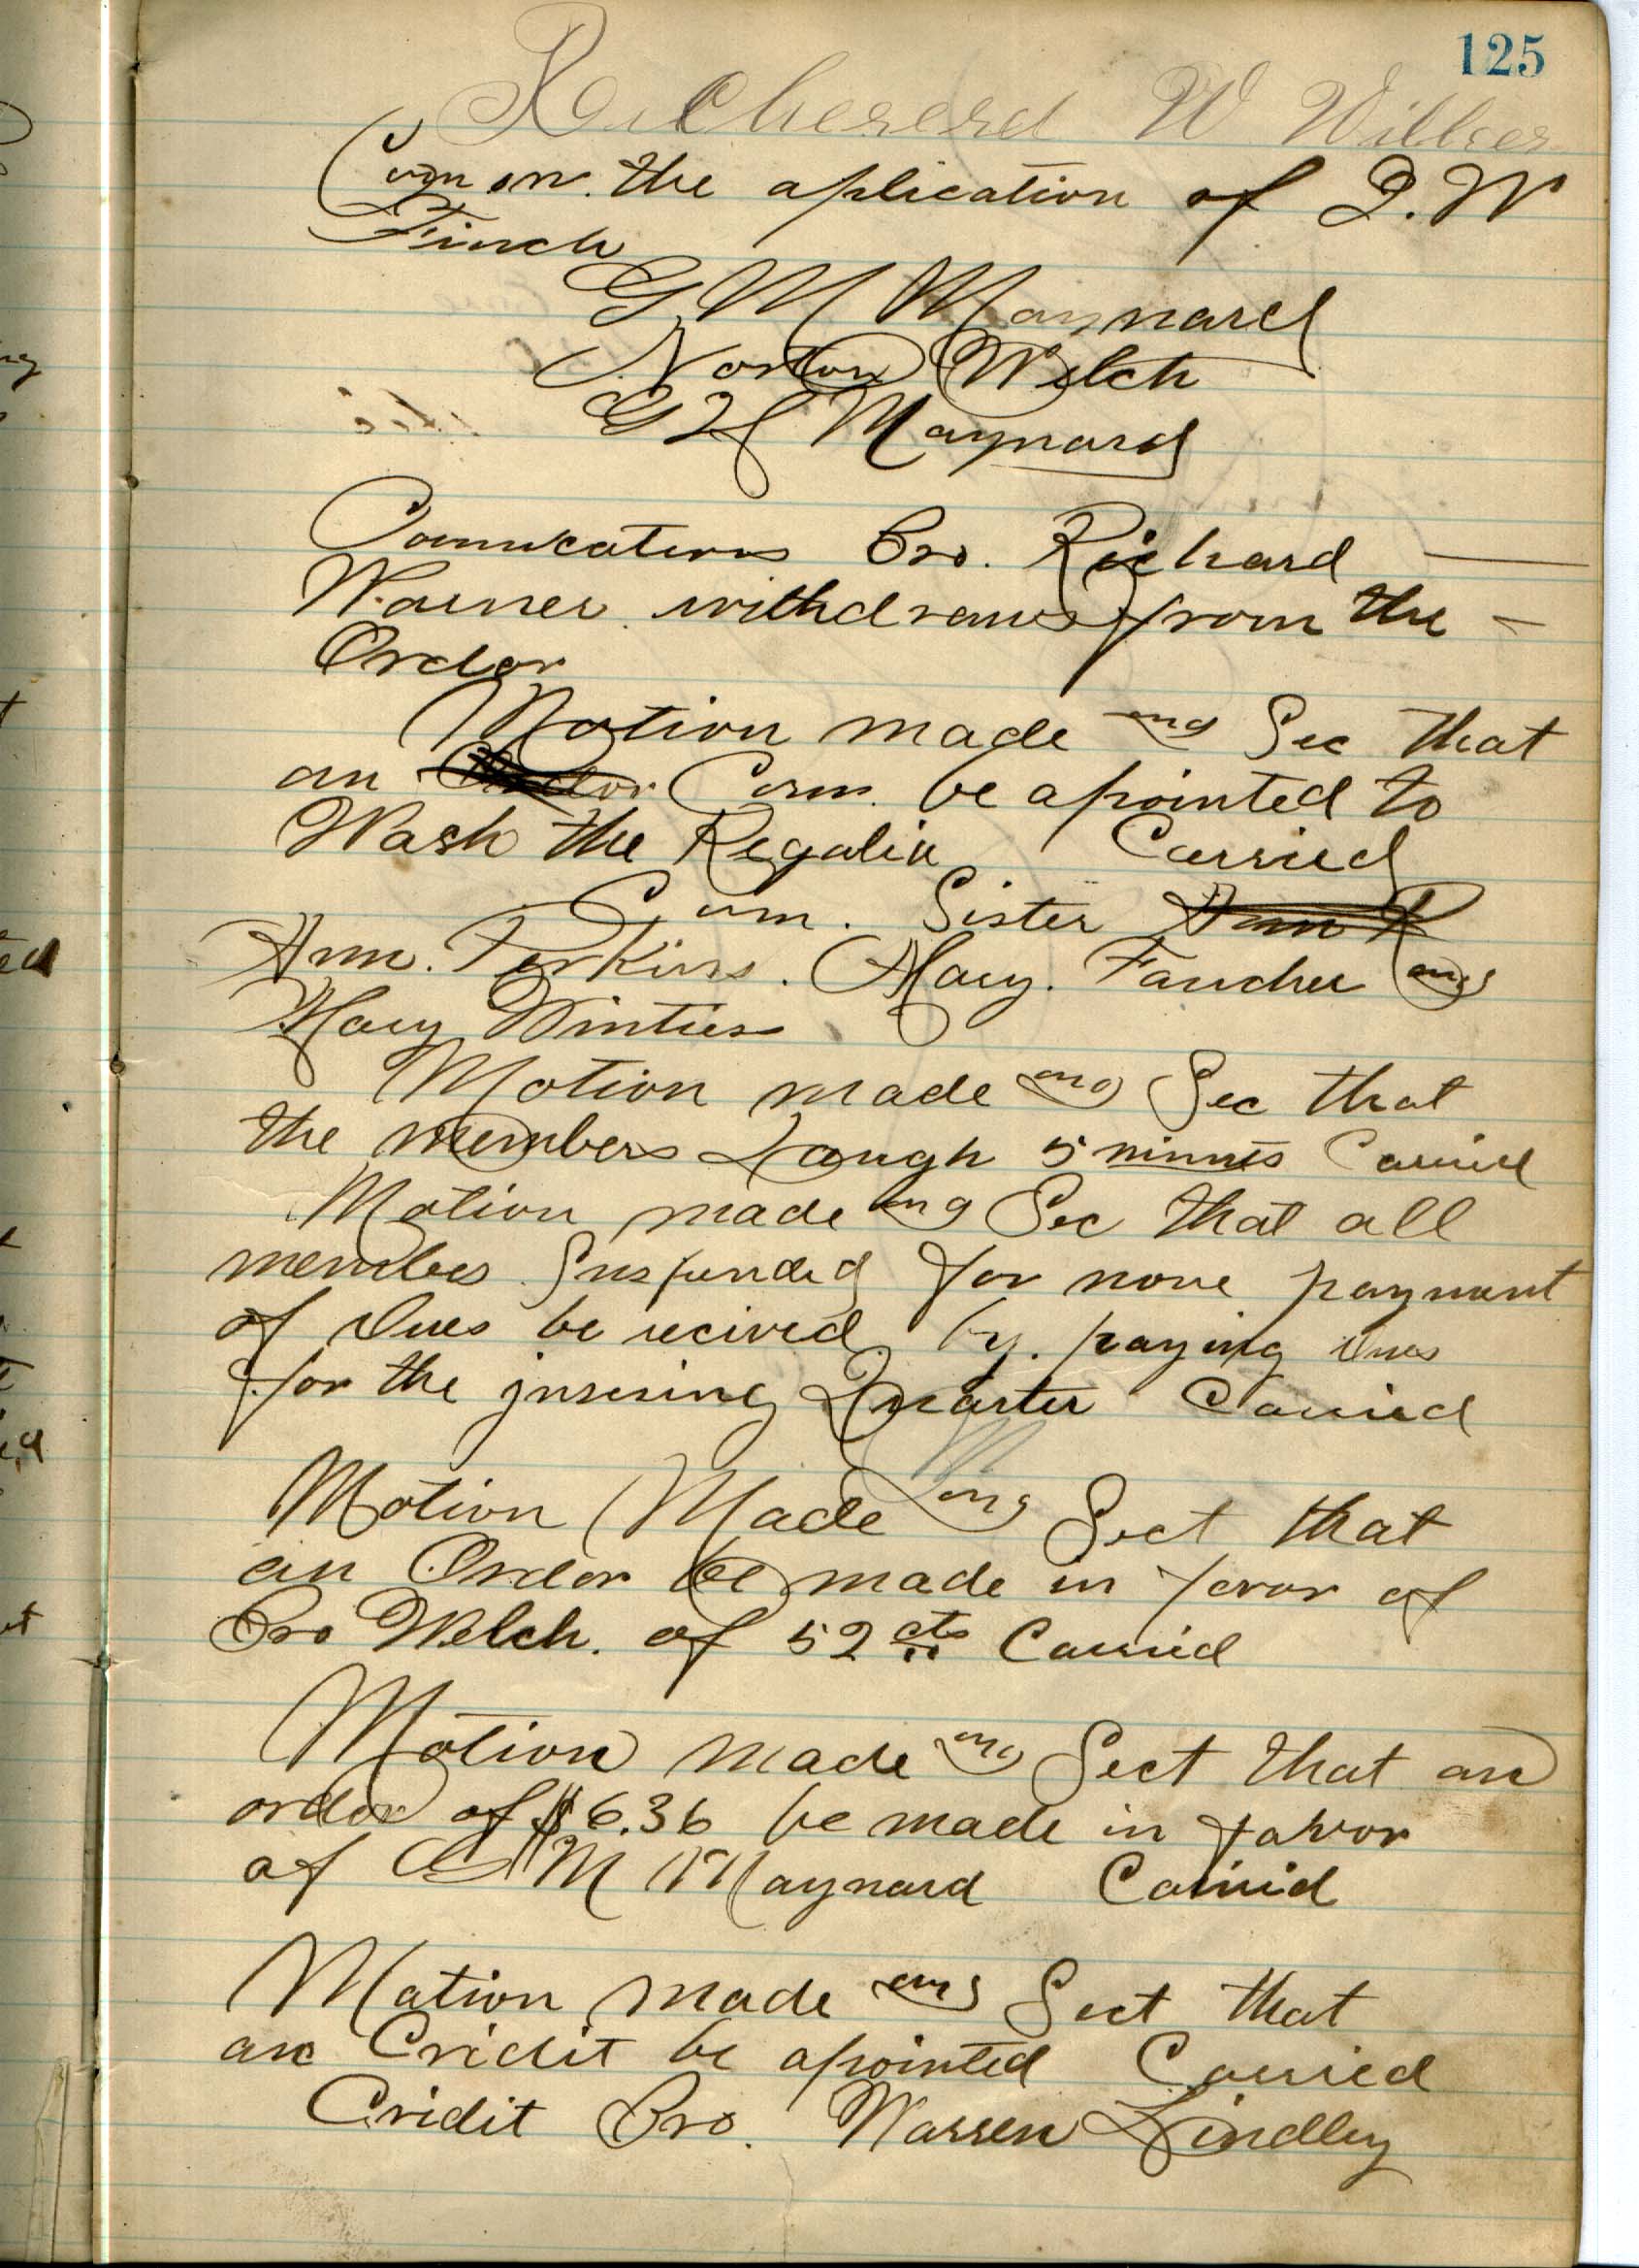 125
W
Com on the aplication of D. W
Finch
G M Maynard
Norton Welch
G H Maynard
Comucations Bro. Richard
Warner withdraws from the
Order
Motion made and Sec that
an Com. be apointed to
Wash the Regalia Carried
Com. Sister Ann P
Ann. Perkins. Mary. Fancher and
Mary Winters
Motion made and Sec that
the members Laugh 5 minuts Carried
Motion made and Sec that all
members Suspended for none payment
of Dues be recived by. paying Dues
for the Quarter Carried
Motion Made and Sect that
an Order be made in favor of
Bro Welch. of 52 cts Carried
Motion made and Sect that an
order of $6.36 be made in favor
of G M Maynard Carried
Motion made and Sect that
an Cridit be apointed Carried
Cridit Bro. Warren Lindley